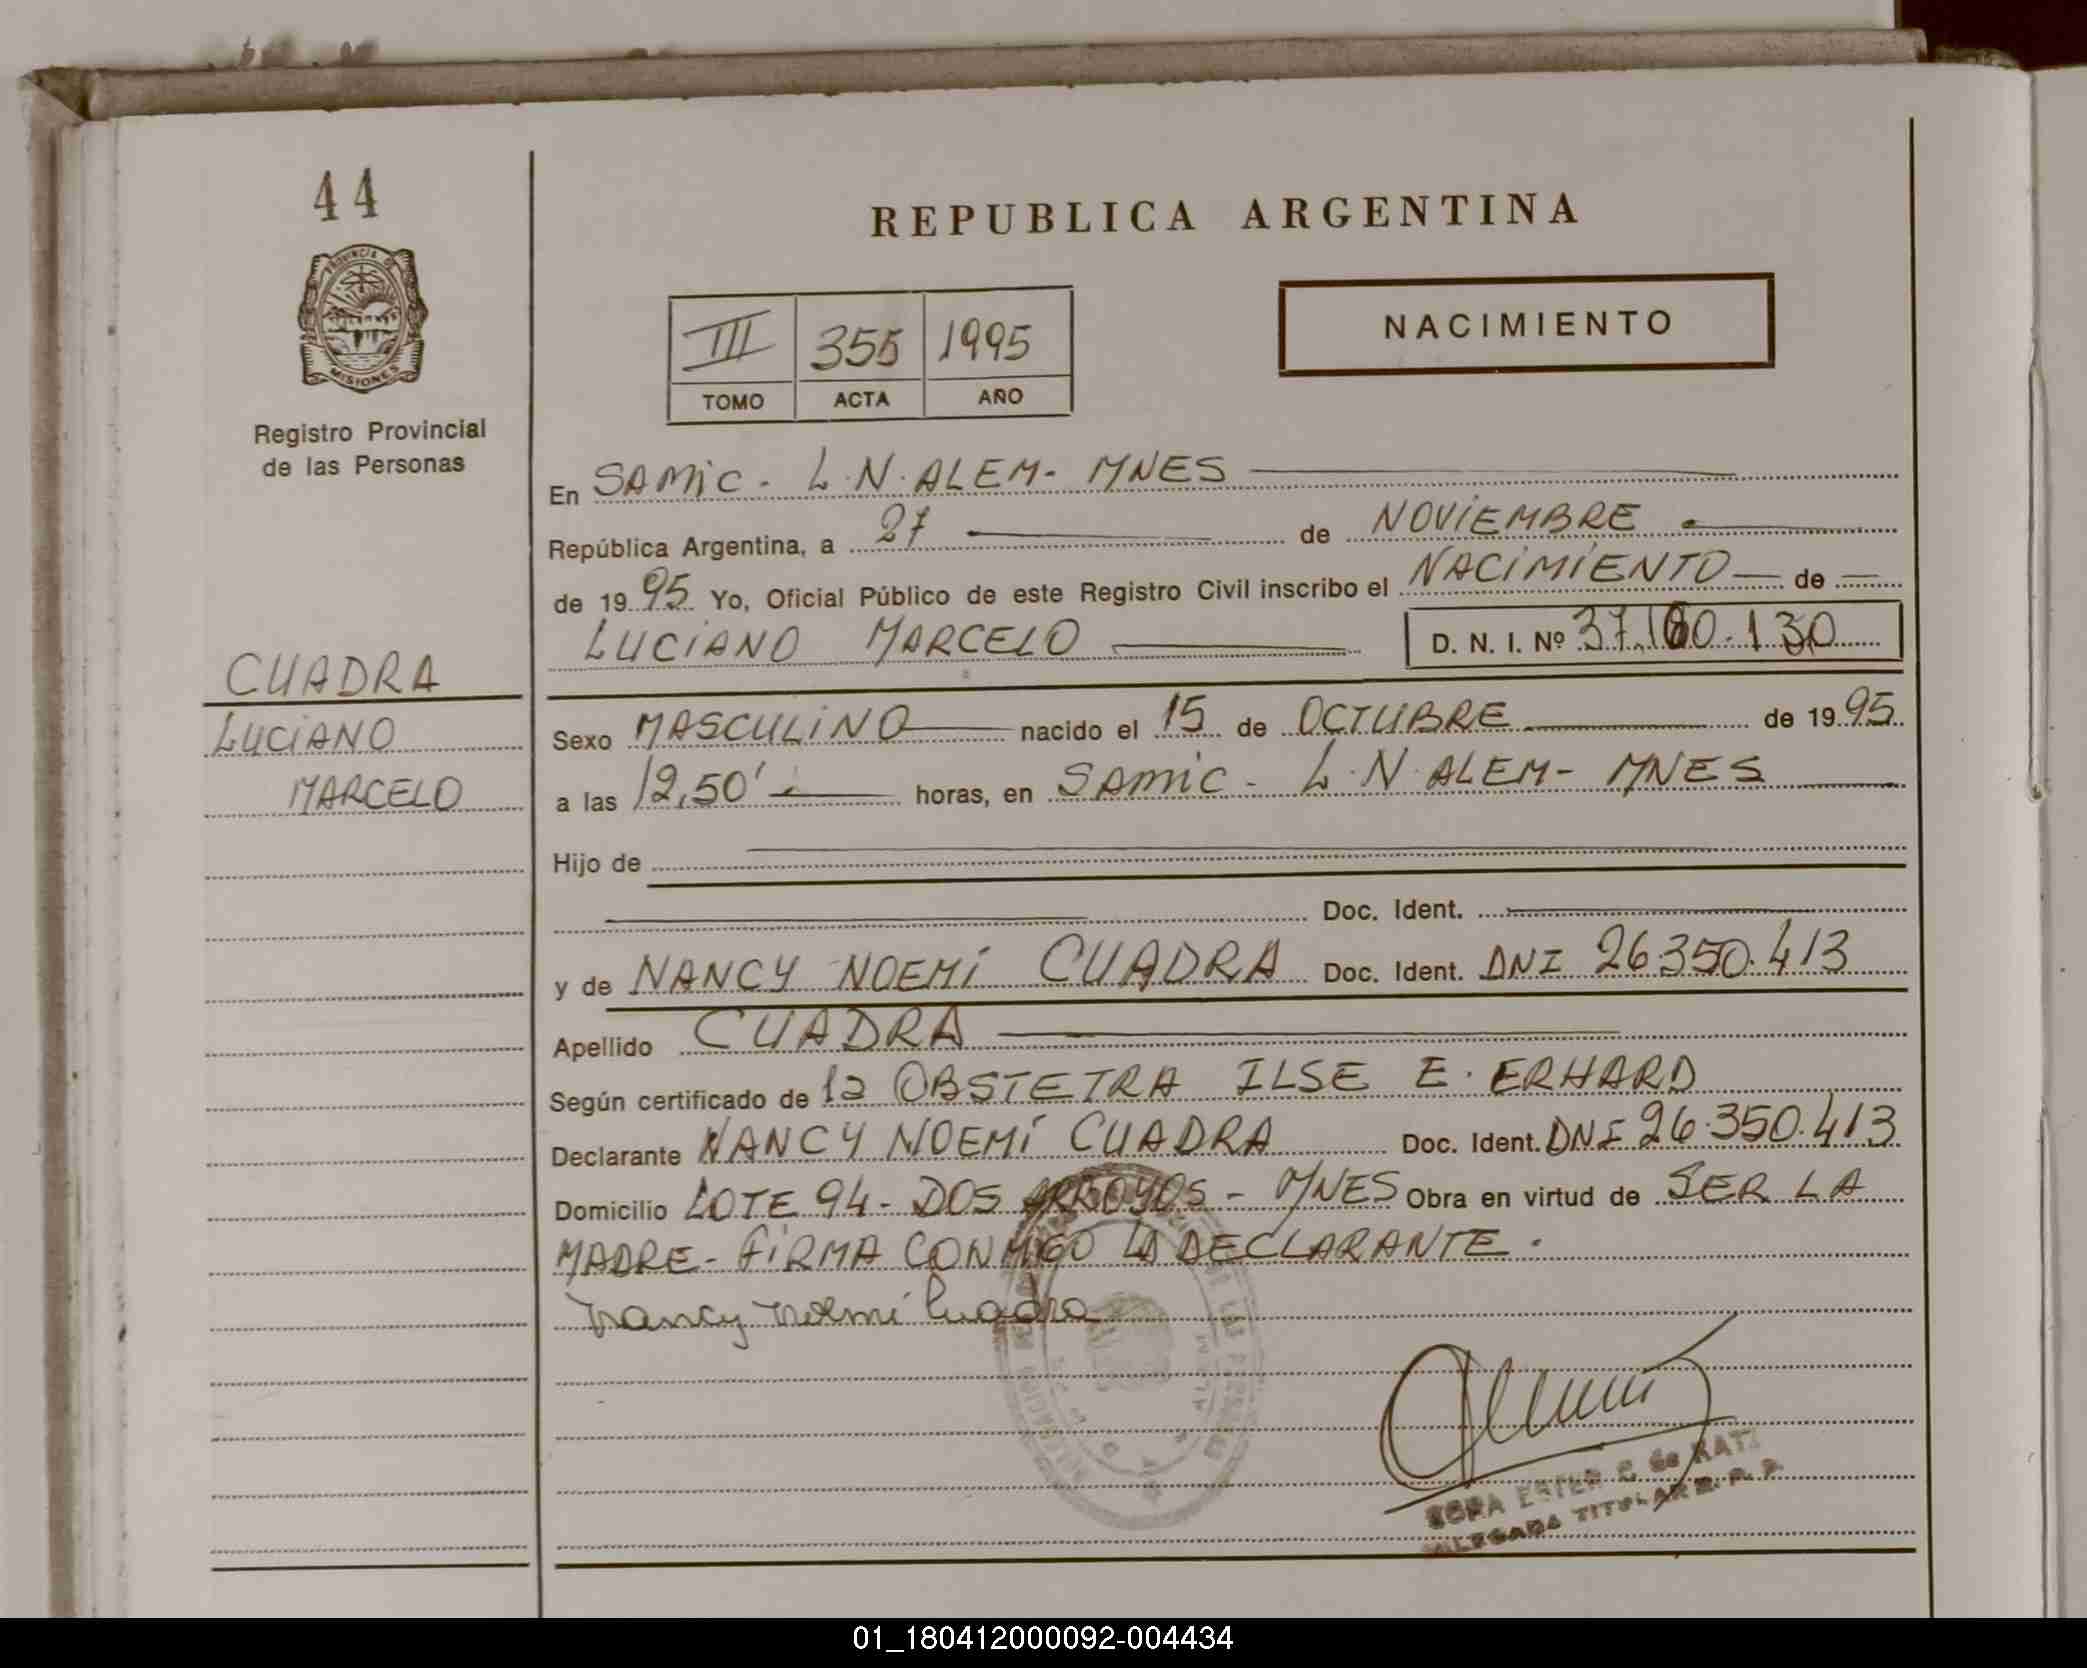 44
PROVINCIA DE
MISIONES
Registro Provincial
de las Personas
CUADRA
LUCIANO
MARCELO
REPUBLICA ARGENTINA
III 355 1995
TOMO ACTA AÑO
NACIMIENTO
En SAMIC - L.N. ALEM - MNES
República Argentina, a 27 de NOVIEMBRE
de 1995 Yo, Oficial Público de este Registro Civil inscribo el NACIMIENTO de
LUCIANO MARCELO D. N. I. Nº 37.160.130
Sexo MASCULINO nacido el 15 de OCTUBRE de 1995
a las 12,50' horas, en SAMIC - L.N. ALEM - MNES
Hijo de
Doc. Ident.
y de NANCY NOEMÍ CUADRA Doc. Ident. DNI 26.350.413
Apellido CUADRA
Según certificado de la OBSTETRA ILSE E. ERHARD
Declarante NANCY NOEMÍ CUADRA Doc. Ident. DNI 26.350.413
Domicilio LOTE 94 - DOS ARROYOS - MNES Obra en virtud de SER LA
MADRE - FIRMA CONMIGO LA DECLARANTE.
Nancy Noemí Cuadra
ESTER E. de RATZ
TITULAR R. P. P.
01_180412000092-004434